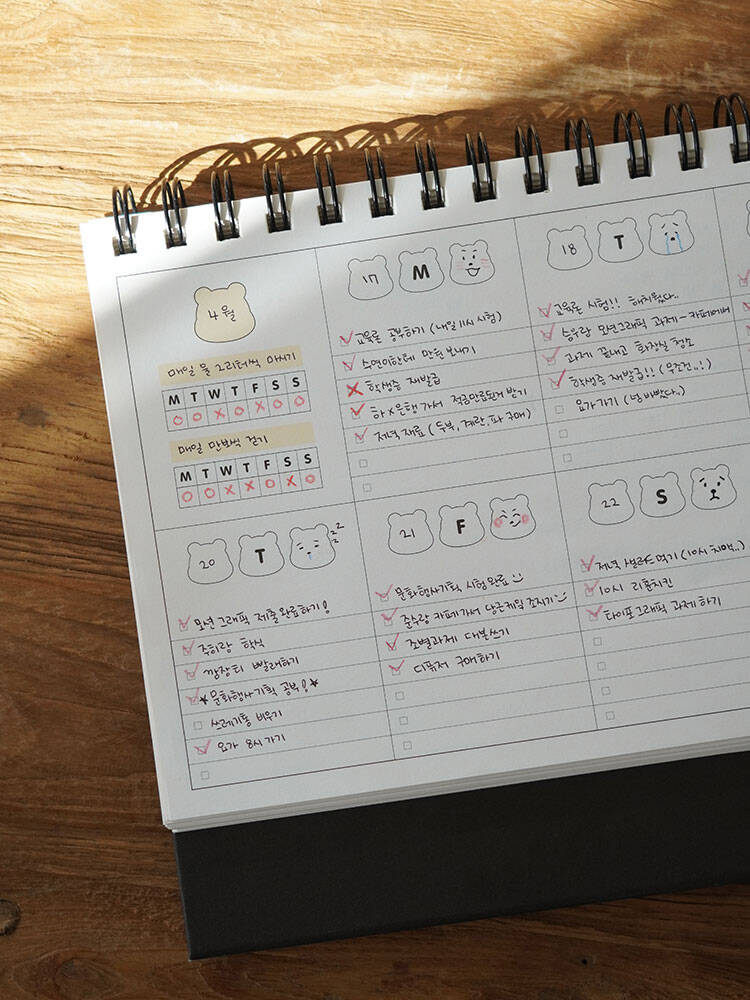 4월
매일 물 2리터씩 마시기
M T W T F S S
O O X O X O O
매일 만보씩 걷기
M T W T F S S
O O X X O X O
17 M
교육론 공부하기 (내일 11시 시험)
소연이한테 만원 보내기
학생증 재발급
하x은행 가서 적금만료된거 받기
저녁 재료 (두부, 계란, 파 구매)
18 T
교육론 시험!! 해치웠다..
승우랑 모션그래픽 과제 - 카페에서
과제 끝내고 화장실 청소
학생증 재발급!! (무조건..!)
요가가기 (넘 바빴다..)
20 T
zzz
모션그래픽 제출완료하기!
주희랑 학식
깜장티 빨래하기
★문화행사기획 공부!★
쓰레기통 비우기
요가 8시 가기
21 F
문화행사기획 시험완료
준수랑 카페가서 당근케잌 조지기
조별과제 대본쓰기
디퓨저 구매하기
22 S
저녁 샐러드 먹기
10시 리훈치킨
타이포그래픽 과제하기